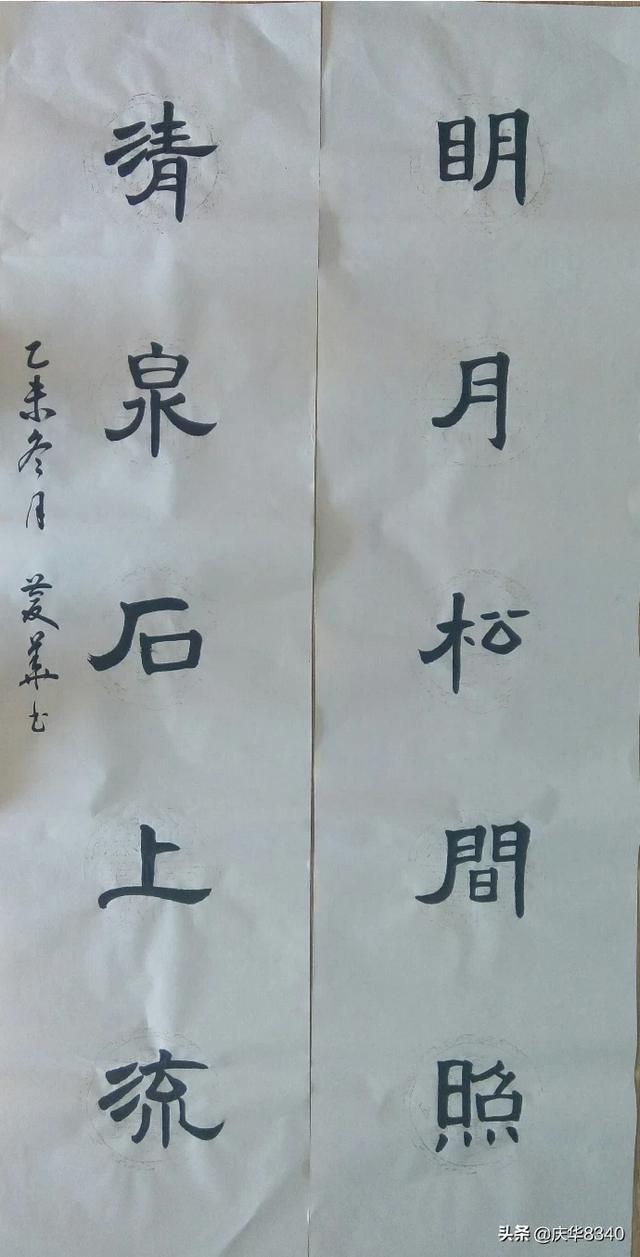 明月松間照
清泉石上流
乙未冬月 華书
头条 @庆华8340